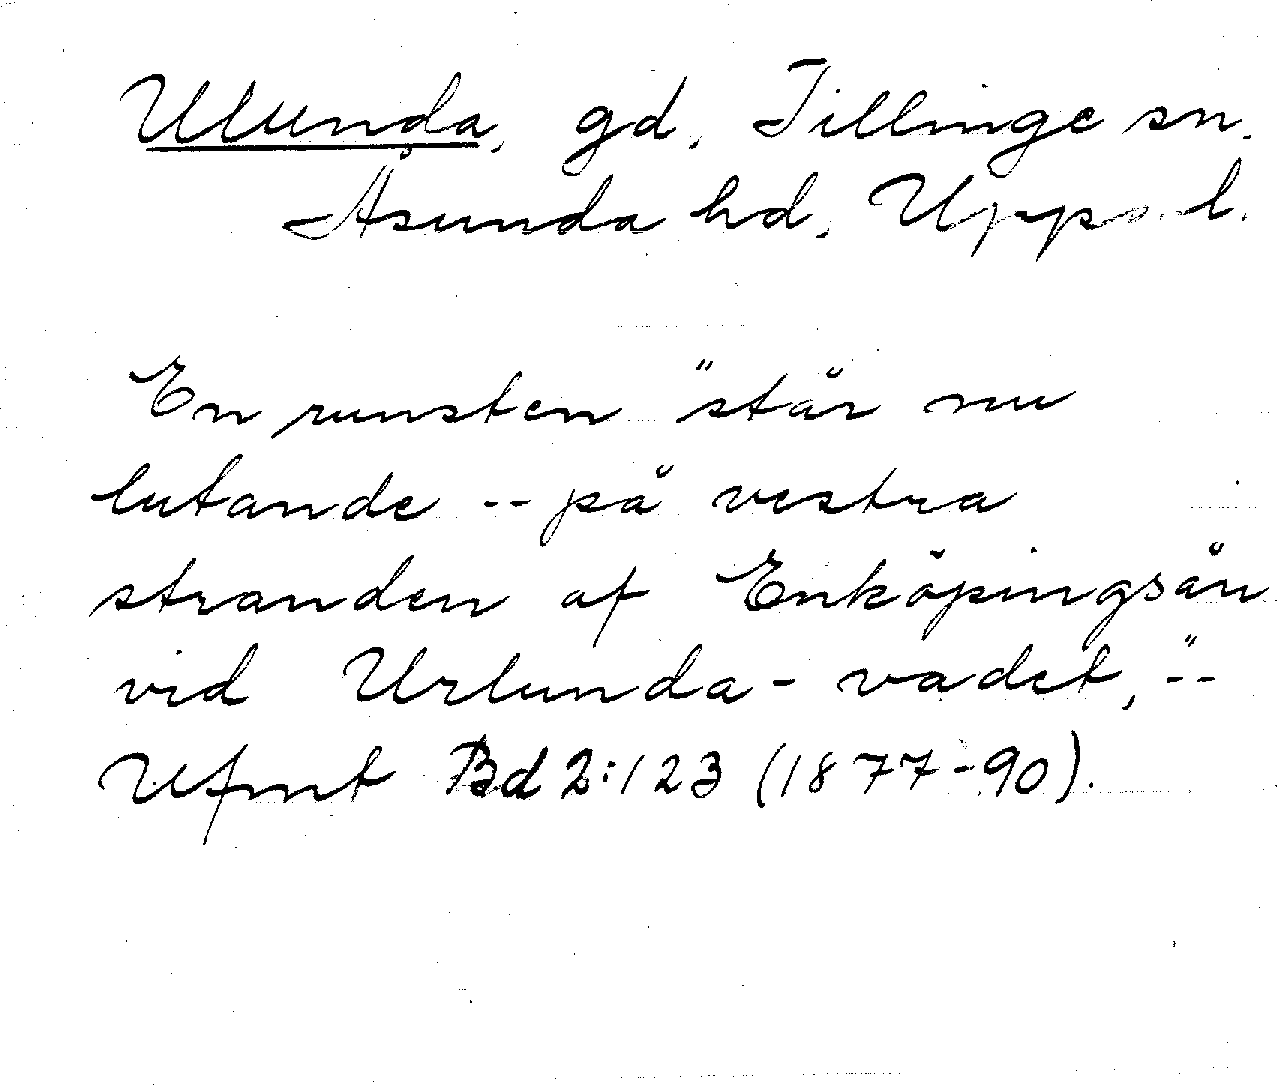 Ulunda, gd, Tillinge sn.
Åsunda hd, Upps. l.
En runsten "står nu
lutande -- på vestra
stranden af Enköpingsån
vid Urlunda-vadet,"--
Ufmt Bd 2:123 (1877-90).